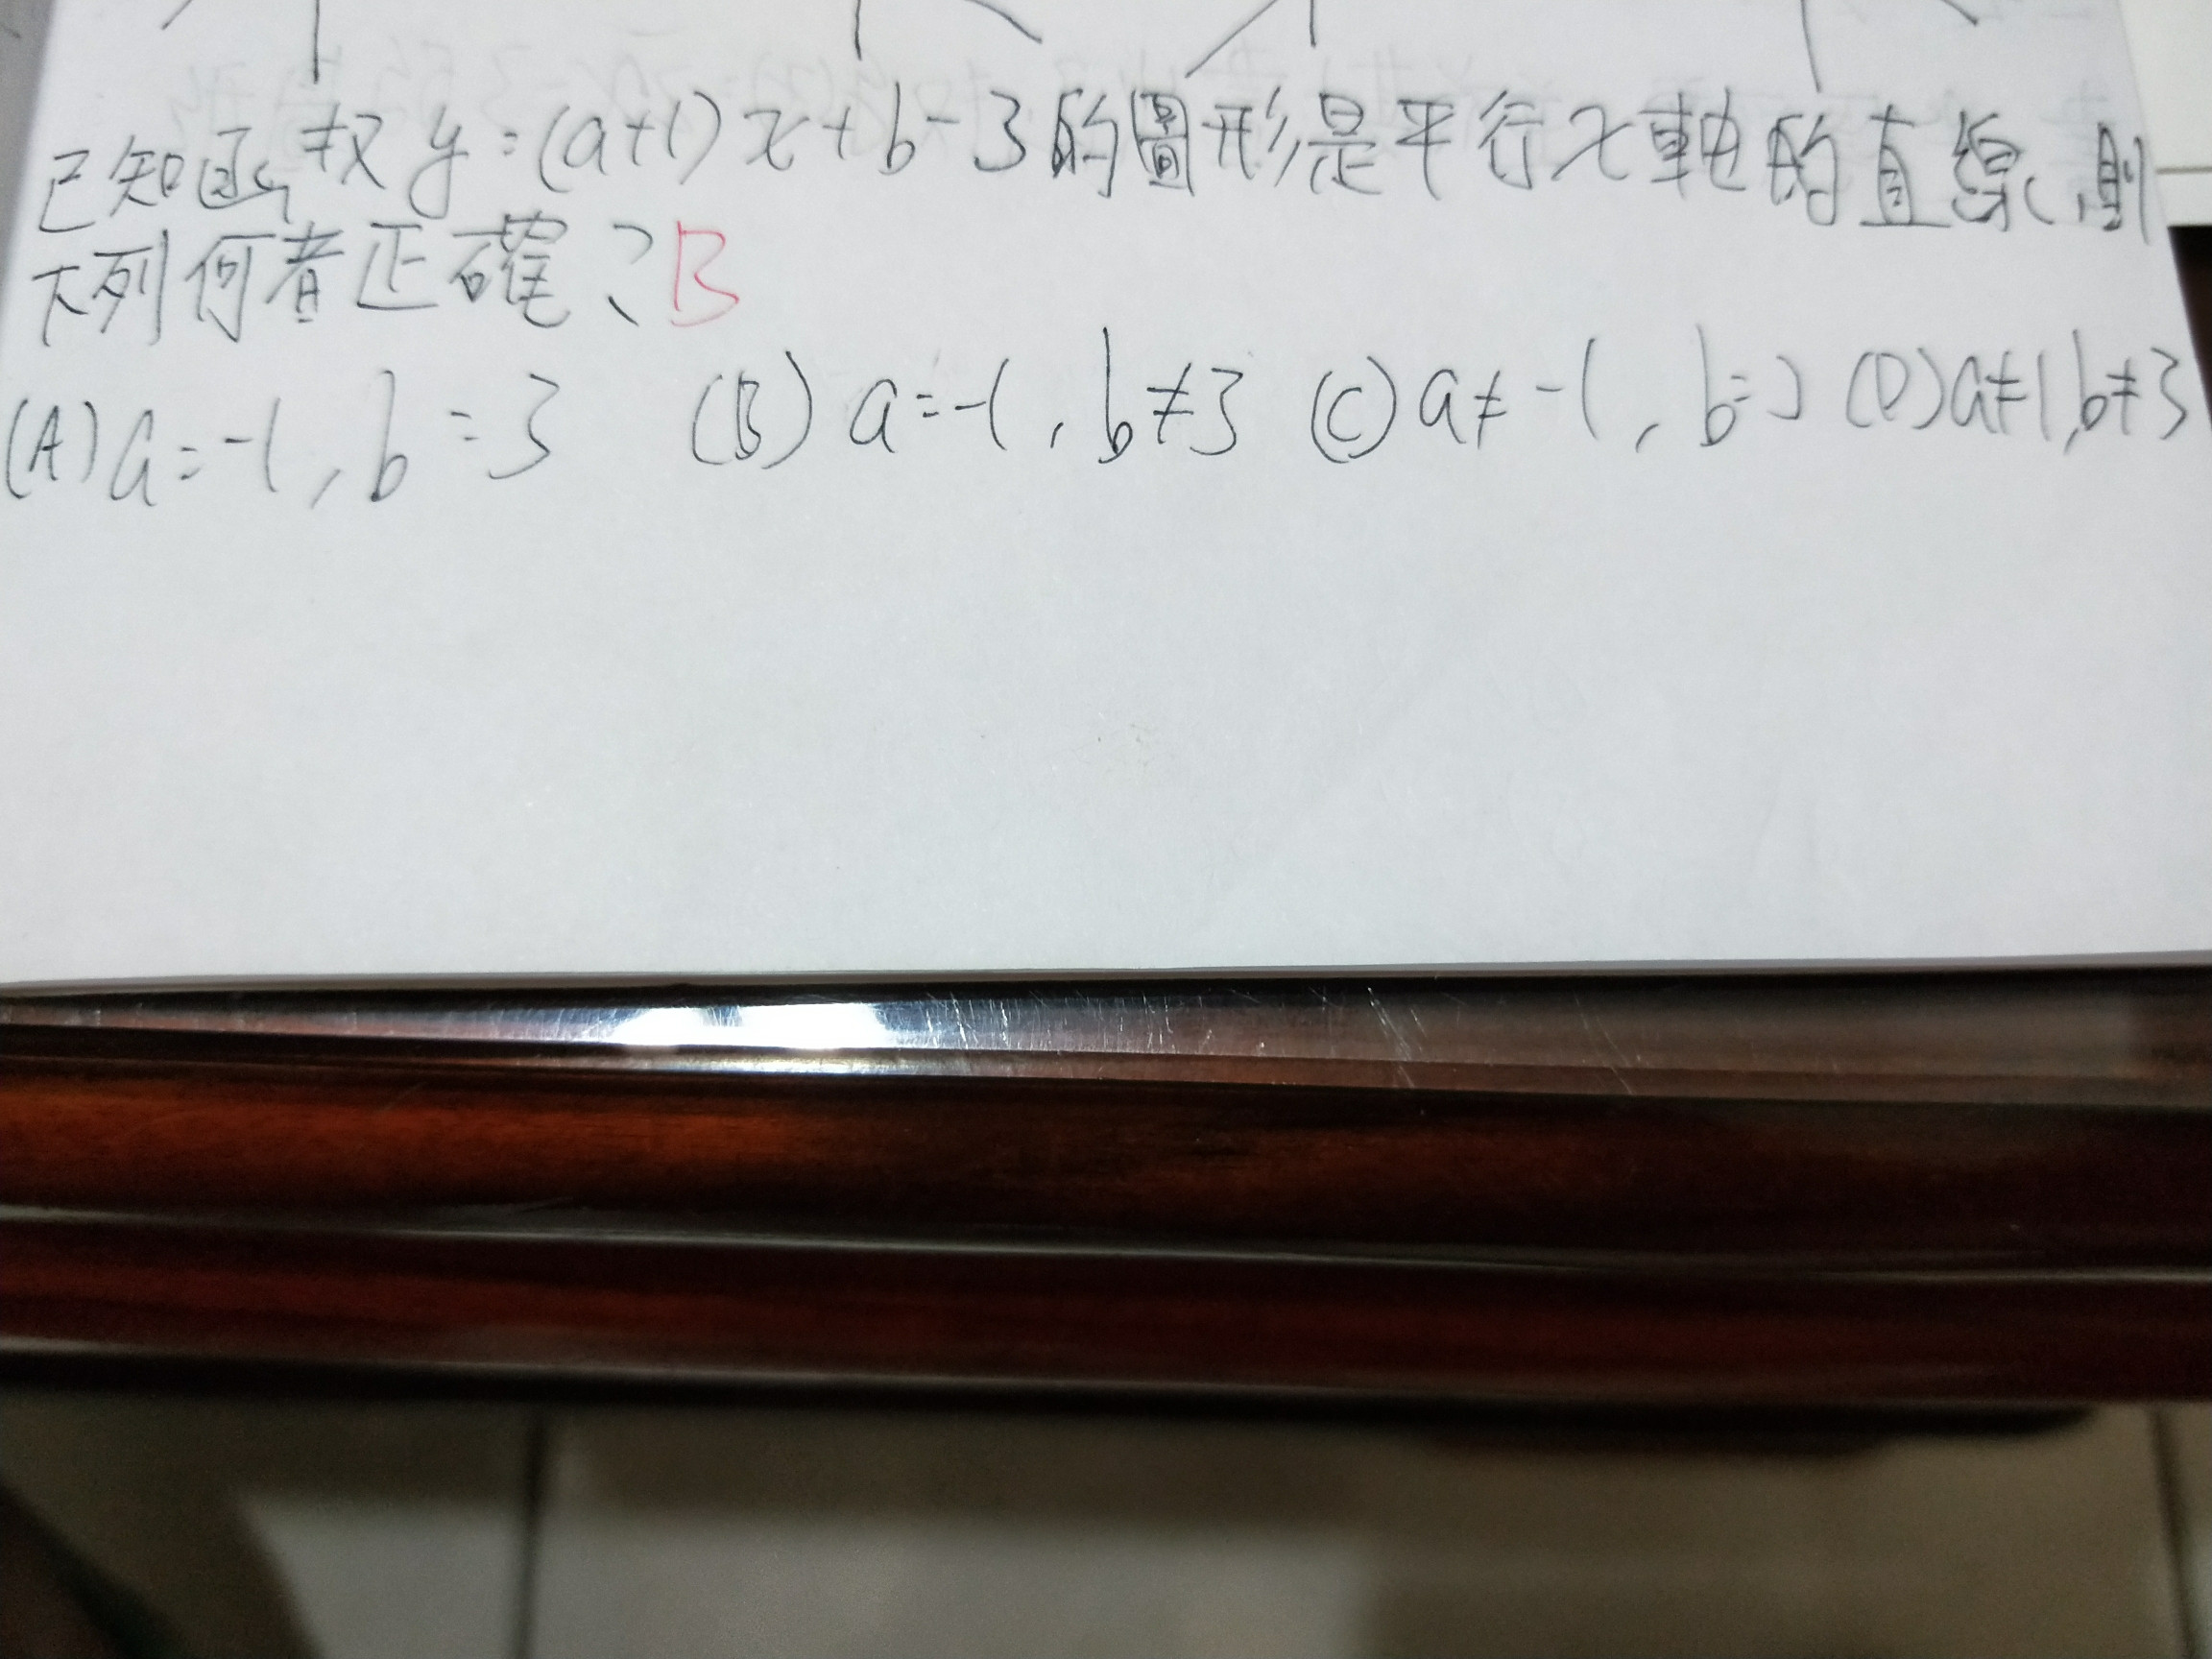 已知函数y=(a+1)x+b-3的圖形是平行x軸的直線,則
下列何者正確?B
(A)a=-1,b=3 (B)a=-1,b≠3 (C)a≠-1,b=3 (D)a≠1,b≠3